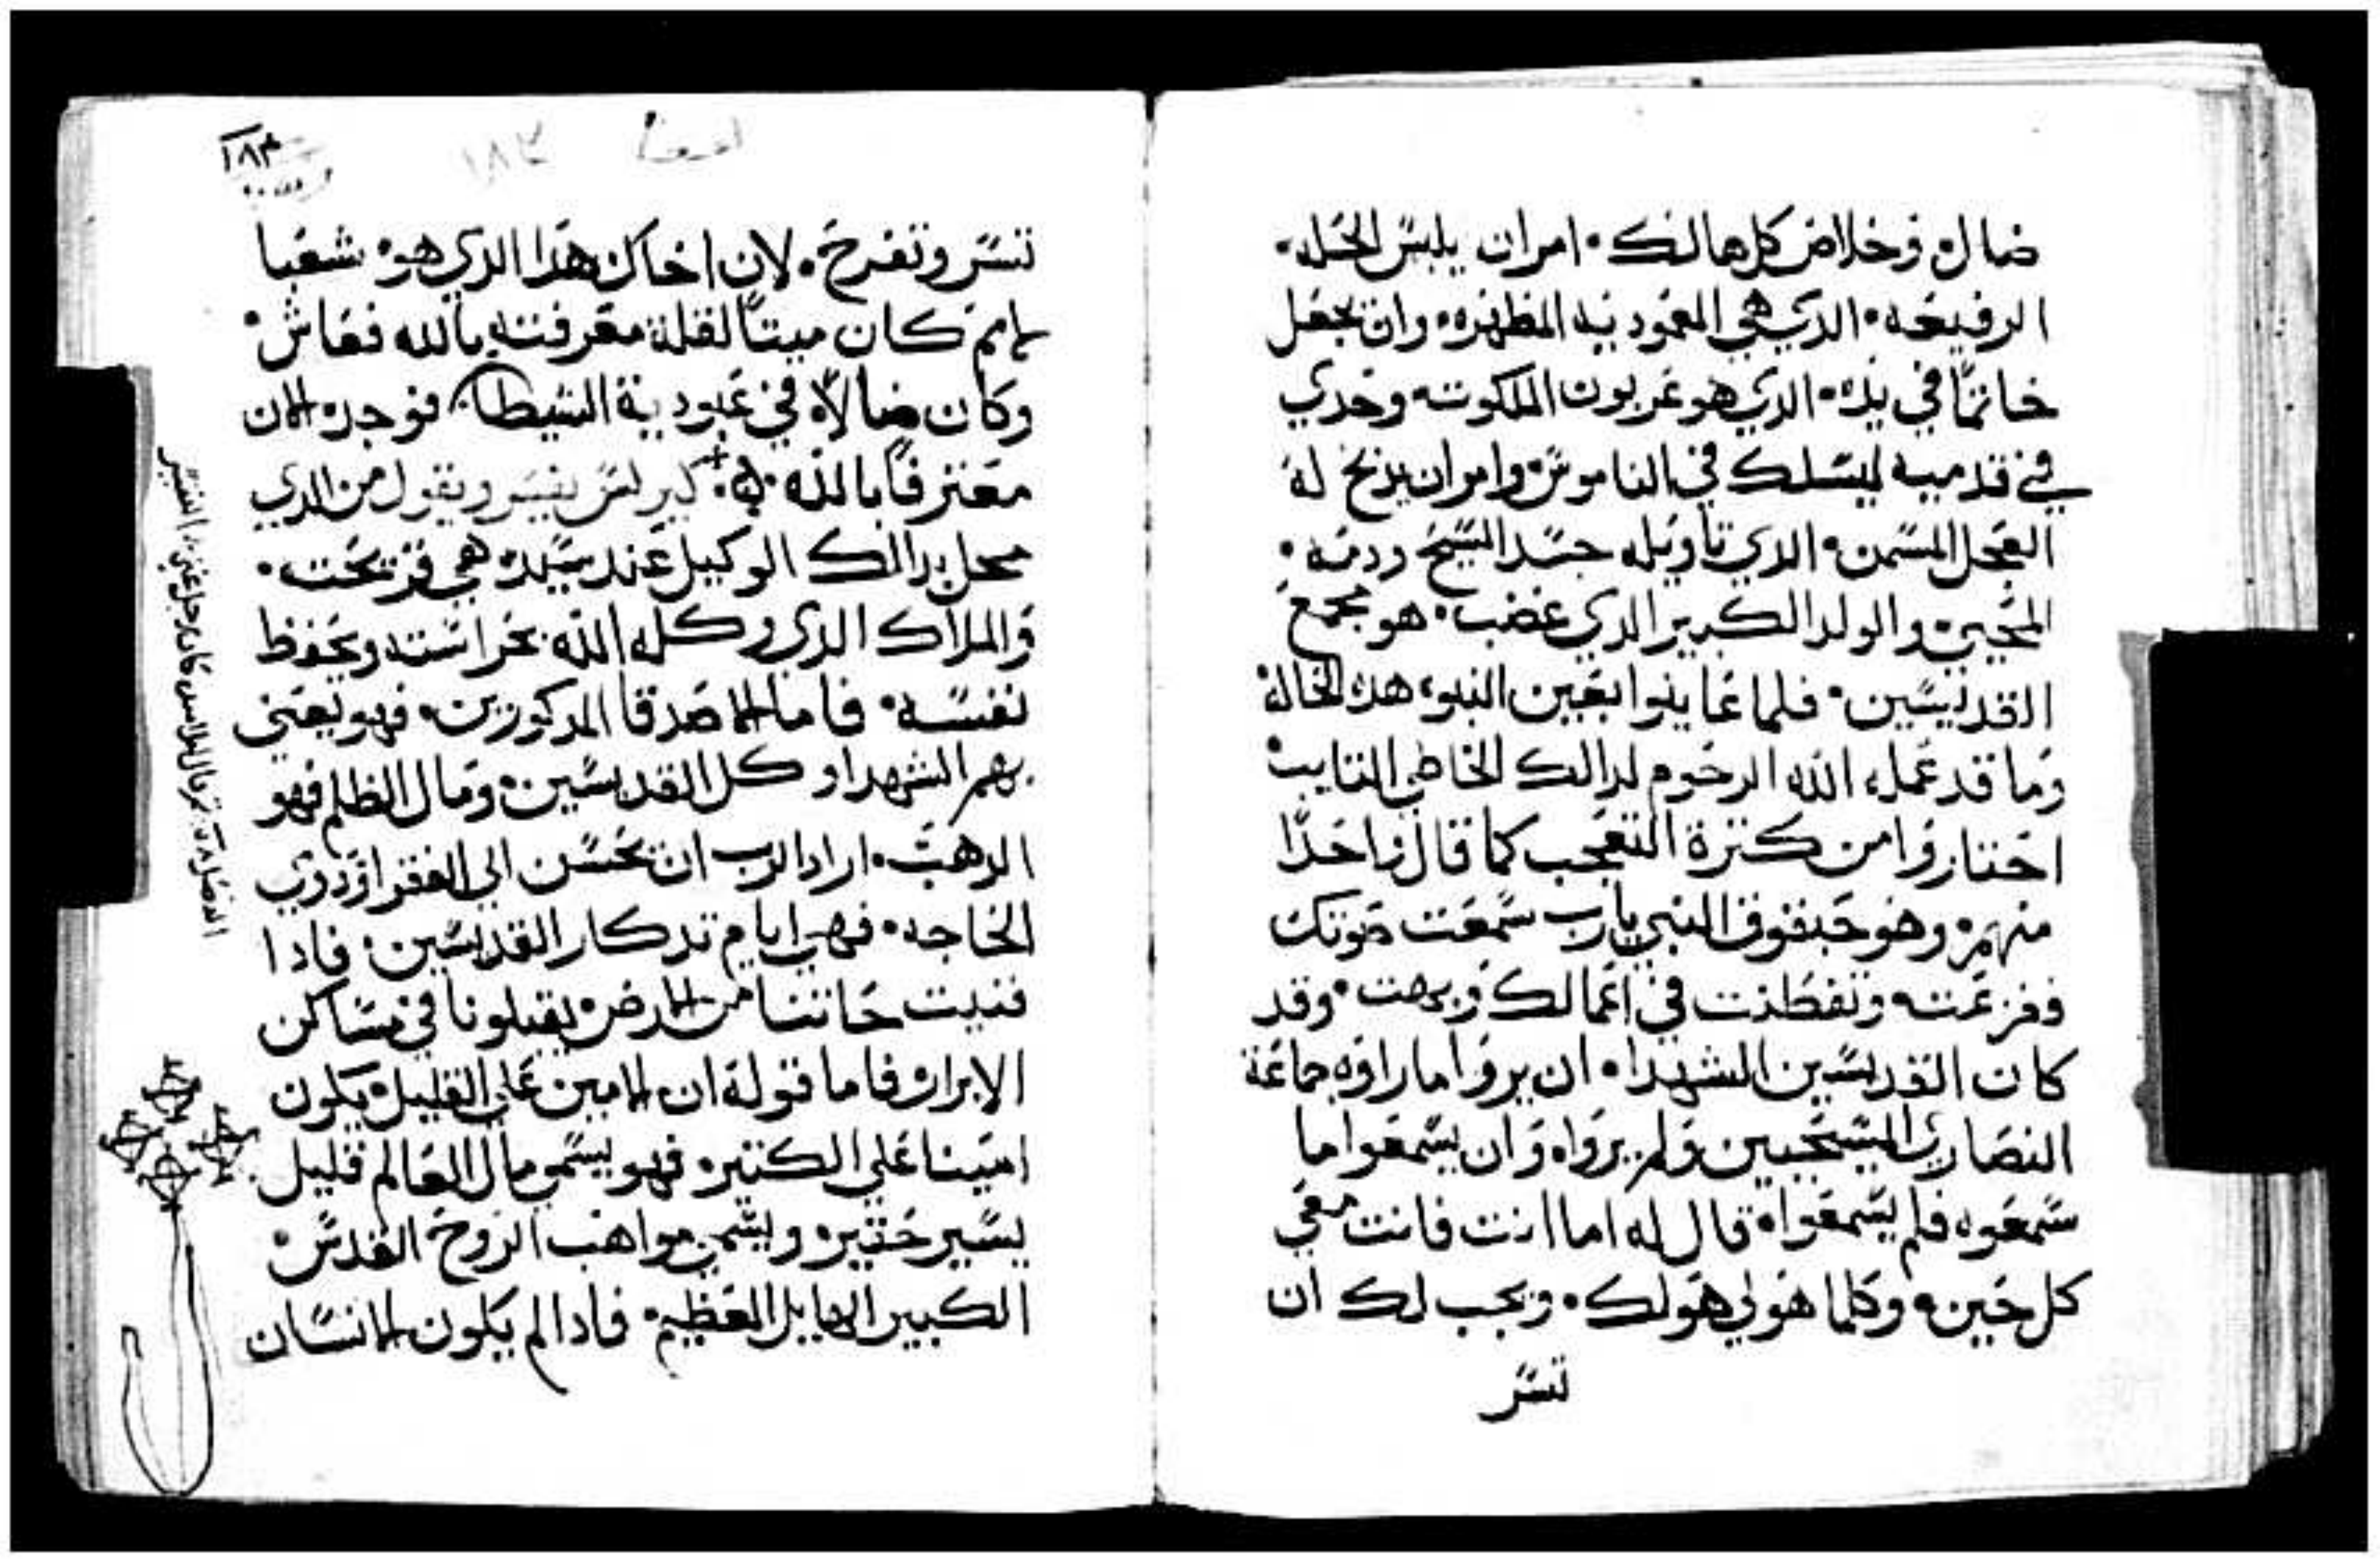 ضال وخلاص كل هالك امر ان يلبس الحله
الرفيعه الذي هي المعموديه المطهره وان يجعل
خاتمًا في يده الدي هو عربون الملكوت وحدي
في قدميه ليسلك في الناموس وامر ان يدبح له
العجل المسمن الدي تاويله جسد المسيح ودمه
المحيي والولد الكبير الدي غضب هو مجمع
القديسين فلما عاينوا بعين النبوه هده الحاله
وما قد عمله الله الرحوم لدالك الخاطي التايب
احتاروا من كترة التعجب كما قال واحدًا
منهم وهو حبقوق النبي يارب سمعت صوتك
ففزعت وتفطنت في اعمالك وبهت وقد
كان القديسين الشهدا ان يروا ما راوه جماعة
النصاري المسيحيين ولم يرواه وان يسمعوا ما
سمعوه فلم يسمعواه قال له اما انت فانت معي
كل حين وكلما هو لي هو لك ويجب لك ان
تسر
١٨٣
١٨٣
تسر وتفرح لان اخاك هدا الدي هو شعبا
كان ميتًا لقلة معرفته بالله فعاش
وكان ضالاً في عبودية الشيطان فوجد الان
معترفًا بالله كيرلس يفسر ويقول من الدي
محل دالك الوكيل عند سيده هي
والملاك الدي وكله الله بحراسته ويحفظ
نفسه فاما الاصدقا المدكورين فهو يعني
بهم الشهدا وكل القديسين ومال الظلم فهو
الدهب اراد الرب ان تحسن الي الفقرا ودوي
الحاجه فهي ايام تدكار القديسين فادا
فنيت حياتنا من الارض يقبلونا في مساكن
الابرار فاما قوله ان الامين علي القليل يكون
امينا علي الكتير فهو يسمي مال العالم قليل
يسير حقير ويسمي مواهب الروح القدس
الكبير الهايل العظيم فادا لم يكون الانسان